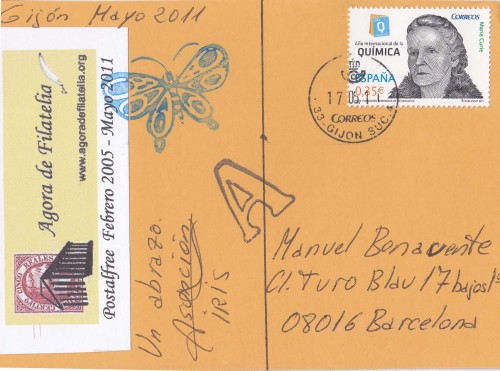 Gijón Mayo 2011
Agora de Filatelia
www.agoradefilatelia.org
Postalfree Febrero 2005 - Mayo 2011
Un abrazo.
Asociación
IRIS
A
Q
Año Internacional de la
QUÍMICA
ESPAÑA
0,35€
CORREOS
Marie Curie
17 05 11
33-GIJON SUC.
CORREOS
Manuel Benavente
Cl. Turo Blau 17 bajos 1ª
08016 Barcelona